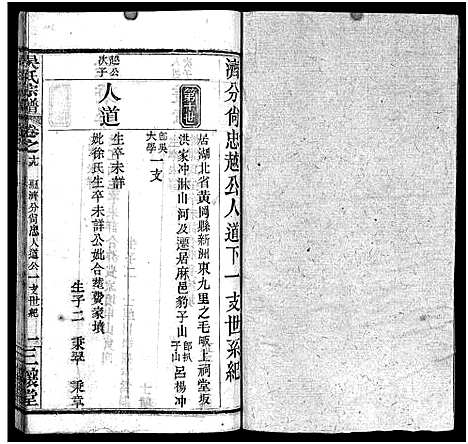 濟分尙忠越公人道下一支世系紀
居湖北省黃岡縣新洲東九里之毛畈上祠堂坂
洪家冲淋山河及遷居麻邑豹子山 卽扒子山 呂楊冲
卽吳大學 一支
越公次子
人道
生卒未詳
妣徐氏生卒未詳公妣合塟費家墳
生子二 秉翠 秉章
吳氏宗譜
卷之
濟分尙忠人道公一支世紀
一
三讓堂